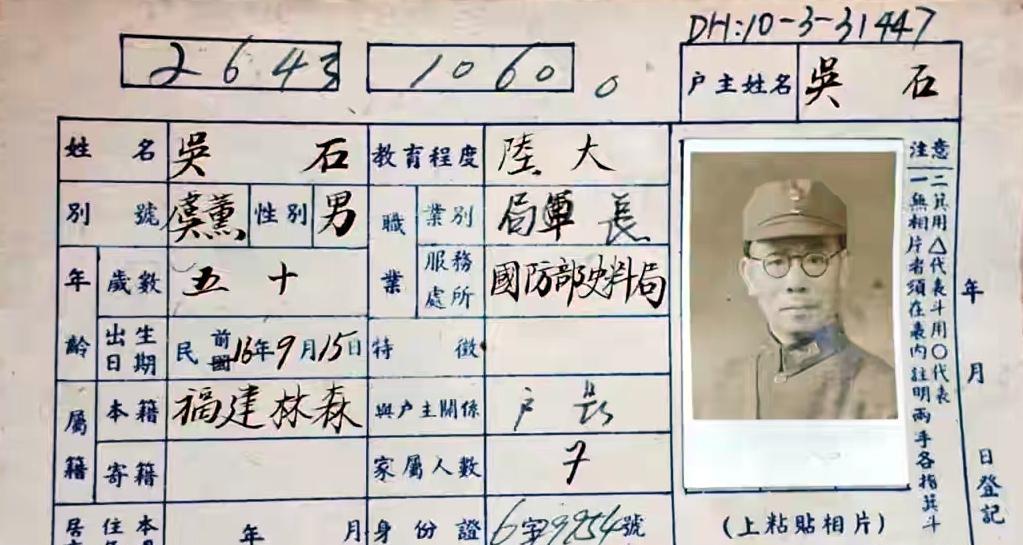 DH:10-3-31447
2643 1060。
户主姓名 吳石
姓名 吳石 教育程度 陸大
別號 虞薰 性別 男 職業 業別 軍 局長
服務處所 國防部史料局
年齡 歲數 五十
出生日期 民前國16年9月15日 特徵
屬籍 本籍 福建林森 與户主關係 户長
寄籍 家屬人數 7
年 月 身份證 6字9954號
注意
一無相片者須在表內註明兩手各指箕斗
二箕用△代表斗用〇代表
年 月 日登記
(上粘貼相片)